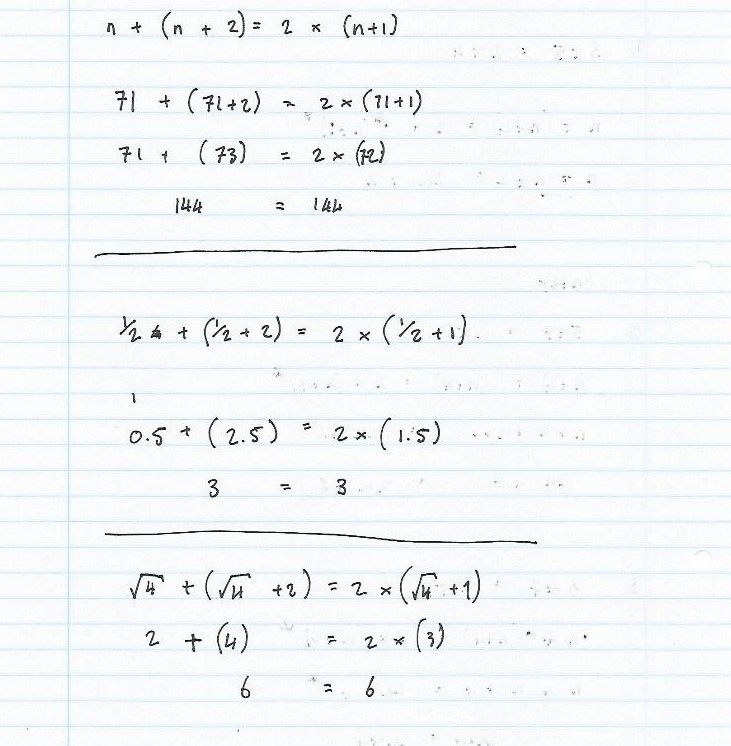 n + (n + 2) = 2 × (n+1)
71 + (71+2) = 2 × (71+1)
71 + (73) = 2 × (72)
144 = 144
1/2 + (1/2 + 2) = 2 × (1/2 + 1).
0.5 + (2.5) = 2 × (1.5)
3 = 3
√4 + (√4 + 2) = 2 × (√4 + 1)
2 + (4) = 2 × (3)
6 = 6